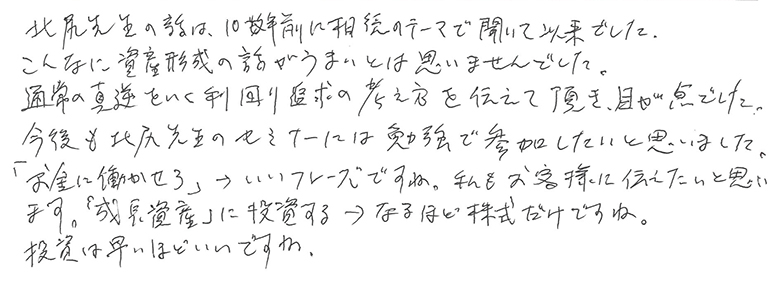 北尻先生の話は、10数年前に相続のテーマで聞いて以来でした。
こんなに資産形成の話がうまいとは思いませんでした。
通常の真逆をいく利回り追求の考え方を伝えて頂き、目が点でした。
今後も北尻先生のセミナーには勉強で参加したいと思いました。
「お金に働かせろ」→いいフレーズですね。私もお客様に伝えたいと思い
ます。「成長資産」に投資する→なるほど株式だけですね。
投資は早いほどいいですね。